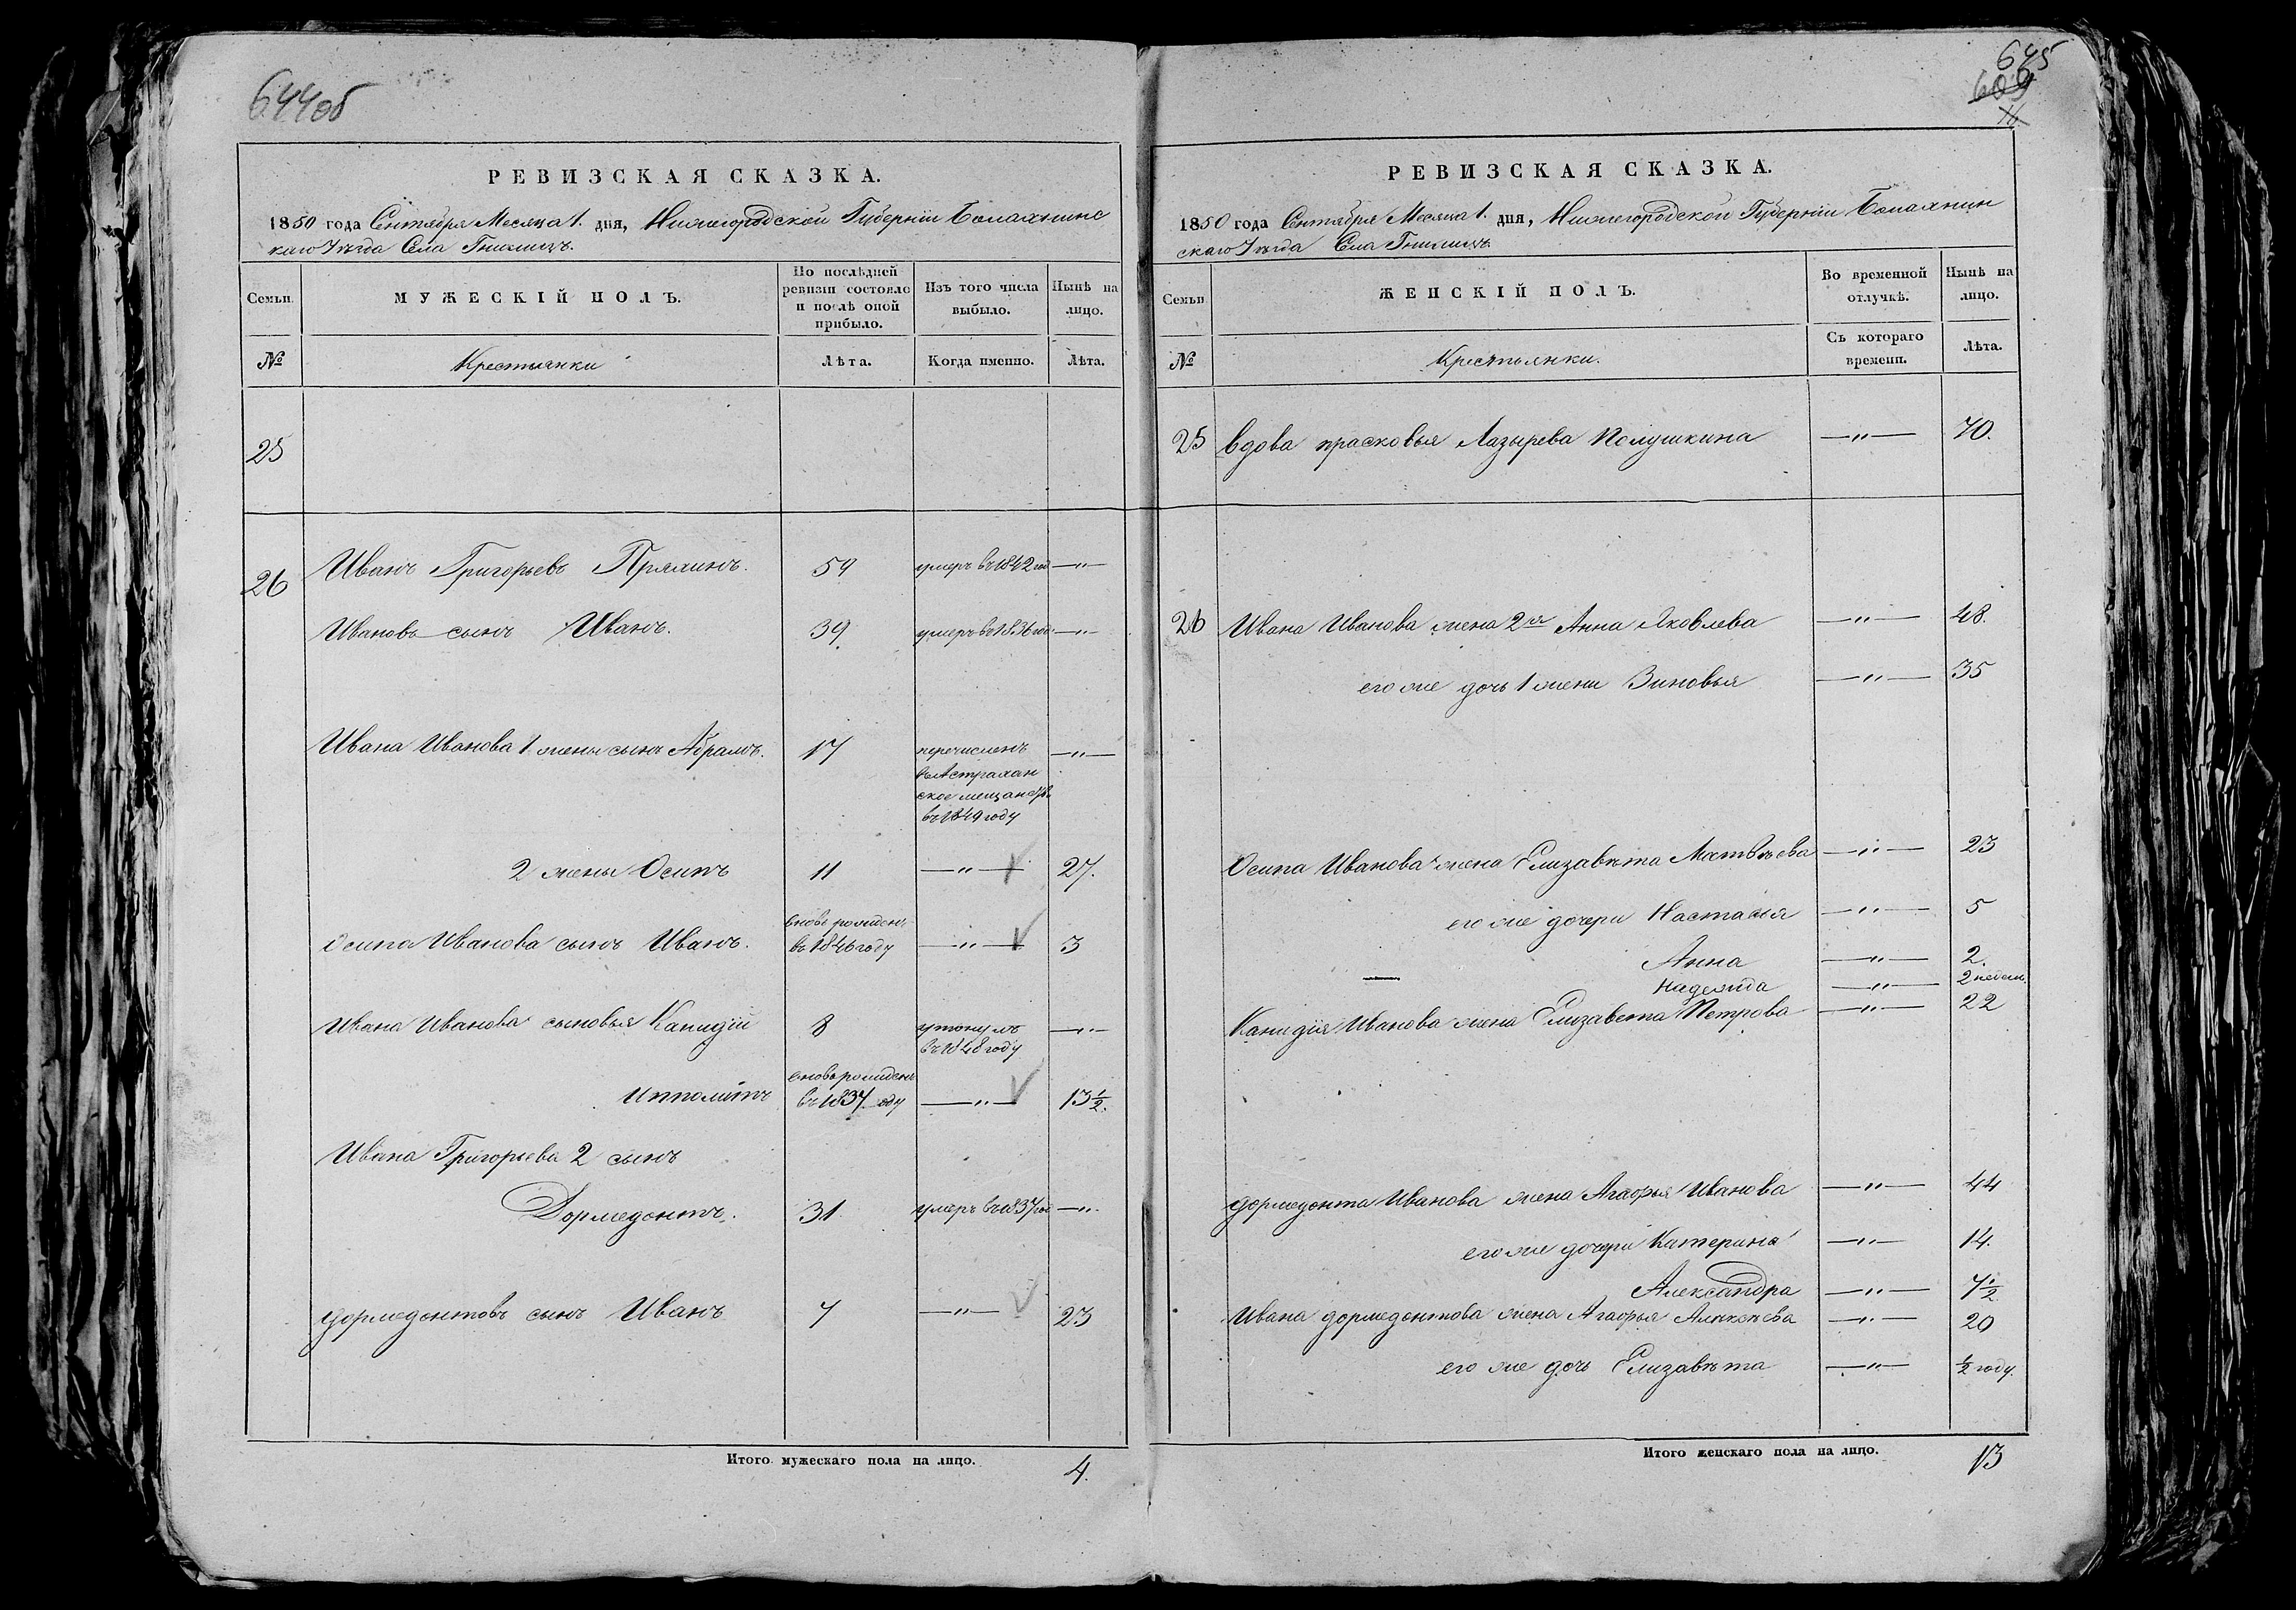 644об
РЕВИЗСКАЯ СКАЗКА.
1850 года Сентября Месяца 1. дня, Нижегородской Губерніи Балахнинс
каго Уѣзда Села Гнилицъ.
Семьи.
МУЖЕСКІЙ ПОЛЪ.
По послѣдней ревизіи состояло и послѣ оной прибыло.
Изъ того числа выбыло.
Нынѣ на лицо.
№
Крестьянки
Лѣта.
Когда именно.
Лѣта.
25
26 Иванъ Григорьевъ Пряхинъ. 59 умеръ въ 1842 год —"—
Ивановъ сынъ Иванъ. 39. умеръ въ 1836 год —"—
Ивана Иванова 1 жены сынъ Абрамъ. 17 перечисленъ —"—
въ Астрахан
ское мещанство
въ 1849 году
2 жены Осипъ 11 —"— 27.
вновь рожденъ
Осипа Иванова сынъ Иванъ. въ 1846 году —"— 3
Ивана Иванова сыновья Канидій 8 утонулъ —"—
въ 1848 году
вновь рожденъ
Ипполитъ въ 1837 году —"— 13 1/2.
Ивана Григорьева 2 сынъ
Дормедонтъ. 31. умеръ въ 1837 год —"—
Дормедонтовъ сынъ Иванъ 7 —"— 23
Итого мужескаго пола на лицо. 4.
645
609
РЕВИЗСКАЯ СКАЗКА.
1850 года Сентября Месяца 1. дня, Нижегородской Губерніи Балахнин
скаго Уѣзда Села Гнилицъ
Семьи
ЖЕНСКІЙ ПОЛЪ.
Во временной отлучкѣ.
Нынѣ на лицо.
№
Крестьянки.
Съ котораго времени.
Лѣта.
25 вдова прасковья Лазырева Полушкина —"— 70.
26 Ивана Иванова жена 2я Анна Яковлева —"— 48.
его же дочь 1 жены Зиновья —"— 35
Осипа Иванова жена Елизавѣта Матвѣева —"— 23
его же дочери Настасья —"— 5
Анна —"— 2.
Надежда —"— 2 недели
Канидія Иванова жена Елизавета Петрова —"— 22
Дормедонта Иванова жена Агафья Иванова —"— 44
его же дочери Катерина —"— 14.
Александра —"— 7 1/2
Ивана Дормедонтова жена Агафья Алексѣева —"— 20
его же дочь Елизавѣта —"— 1/2 году.
Итого женскаго пола на лицо. 13